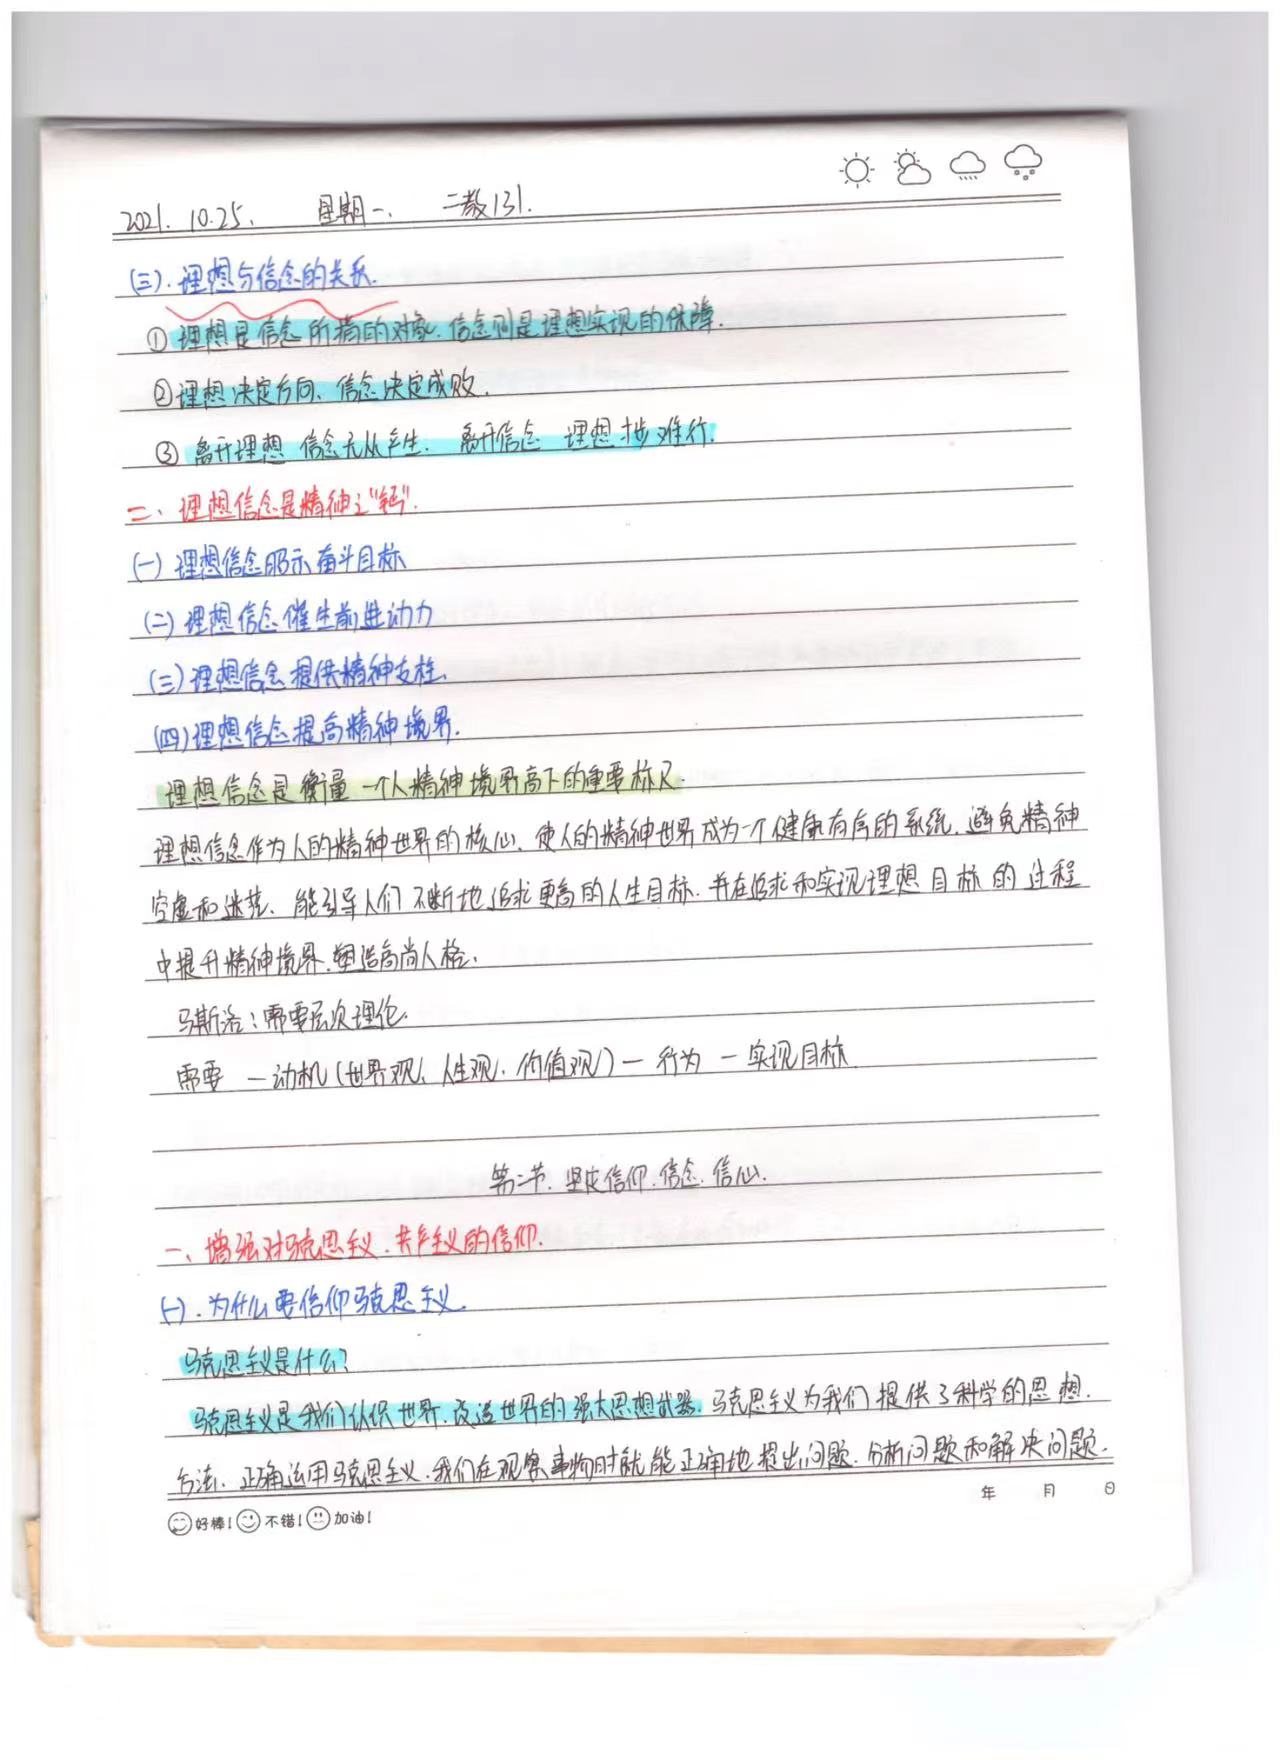 2021. 10.25. 星期一. 二教131.
(三).理想与信念的关系.
①理想是信念所指的对象.信念则是理想实现的保障.
②理想决定方向、信念决定成败.
③离开理想 信念无从产生. 离开信念 理想寸步难行.
二、理想信念是精神之"钙".
(一)理想信念昭示奋斗目标
(二)理想信念催生前进动力
(三)理想信念提供精神支柱.
(四)理想信念提高精神境界.
理想信念是衡量一个人精神境界高下的重要标尺
理想信念作为人的精神世界的核心、使人的精神世界成为一个健康有序的系统.避免精神
空虚和迷茫、能引导人们不断地追求更高的人生目标.并在追求和实现理想目标的过程
中提升精神境界.塑造高尚人格.
马斯洛:需要层次理论.
需要 — 动机(世界观、人生观.价值观)— 行为 — 实现目标.
第二节.坚定信仰.信念.信心.
一、增强对马克思主义.共产主义的信仰.
(一).为什么要信仰马克思主义.
马克思主义是什么?
马克思主义是我们认识世界.改造世界的强大思想武器.马克思主义为我们提供了科学的思想.
方法、正确运用马克思主义.我们在观察事物时就能正确地提出问题.分析问题和解决问题.
年 月 日
好棒! 不错! 加油!